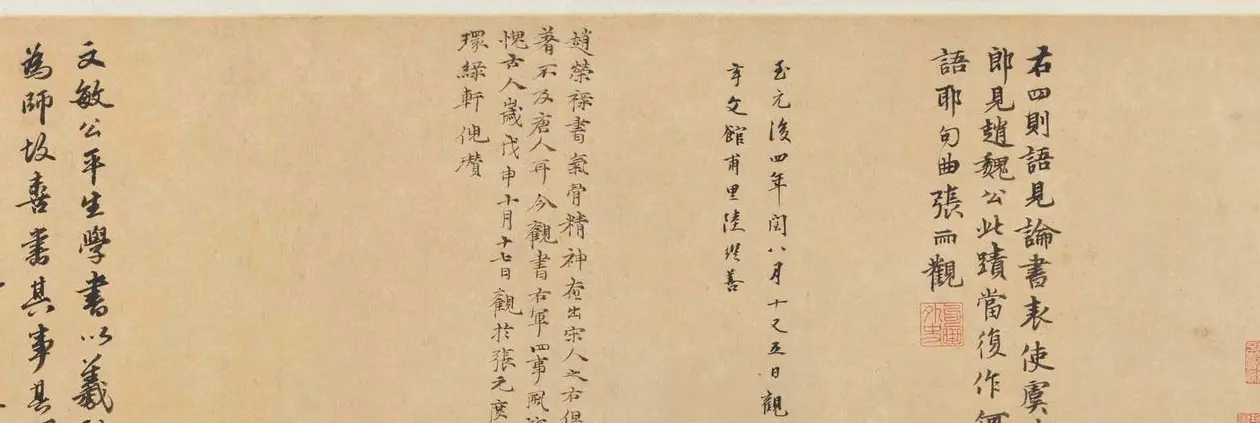 右四則語見論書表使虞
郎見趙魏公此蹟當復作
語耶句曲張雨觀
至元後四年閏八月十又五日觀
文館甫里陸継善
趙榮祿書氣骨精神出宋人之右但
著不及唐人耳今觀書右軍四事風
愧古人歲戊申十月十七日觀於張元度
環綠軒倪瓚
文敏公平生學書以羲
為師故善書其事其